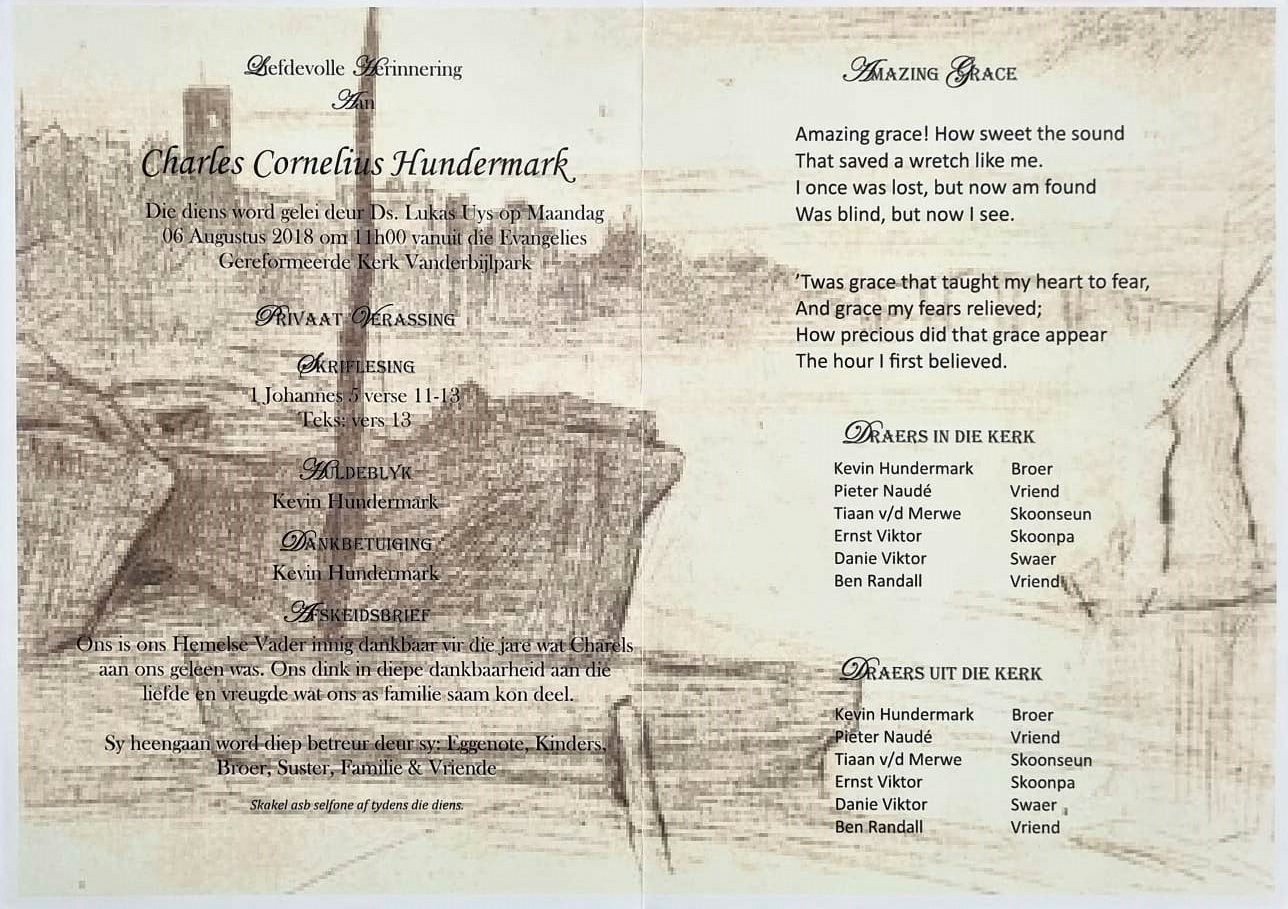 Liefdevolle Herinnering
Aan
Charles Cornelius Hundermark
Die diens word gelei deur Ds. Lukas Uys op Maandag
06 Augustus 2018 om 11h00 vanuit die Evangelies
Gereformeerde Kerk Vanderbijlpark
PRIVAAT VERASSING
SKRIFLESING
1 Johannes 5 verse 11-13
Teks: vers 13
HULDEBLYK
Kevin Hundermark
DANKBETUIGING
Kevin Hundermark
AFSKEIDSBRIEF
Ons is ons Hemelse Vader innig dankbaar vir die jare wat Charels
aan ons geleen was. Ons dink in diepe dankbaarheid aan die
liefde en vreugde wat ons as familie saam kon deel.
Sy heengaan word diep betreur deur sy: Eggenote, Kinders,
Broer, Suster, Familie & Vriende
Skakel asb selfone af tydens die diens.
AMAZING GRACE
Amazing grace! How sweet the sound
That saved a wretch like me.
I once was lost, but now am found
Was blind, but now I see.
’Twas grace that taught my heart to fear,
And grace my fears relieved;
How precious did that grace appear
The hour I first believed.
DRAERS IN DIE KERK
Kevin Hundermark Broer
Pieter Naudé Vriend
Tiaan v/d Merwe Skoonseun
Ernst Viktor Skoonpa
Danie Viktor Swaer
Ben Randall Vriend
DRAERS UIT DIE KERK
Kevin Hundermark Broer
Pieter Naudé Vriend
Tiaan v/d Merwe Skoonseun
Ernst Viktor Skoonpa
Danie Viktor Swaer
Ben Randall Vriend